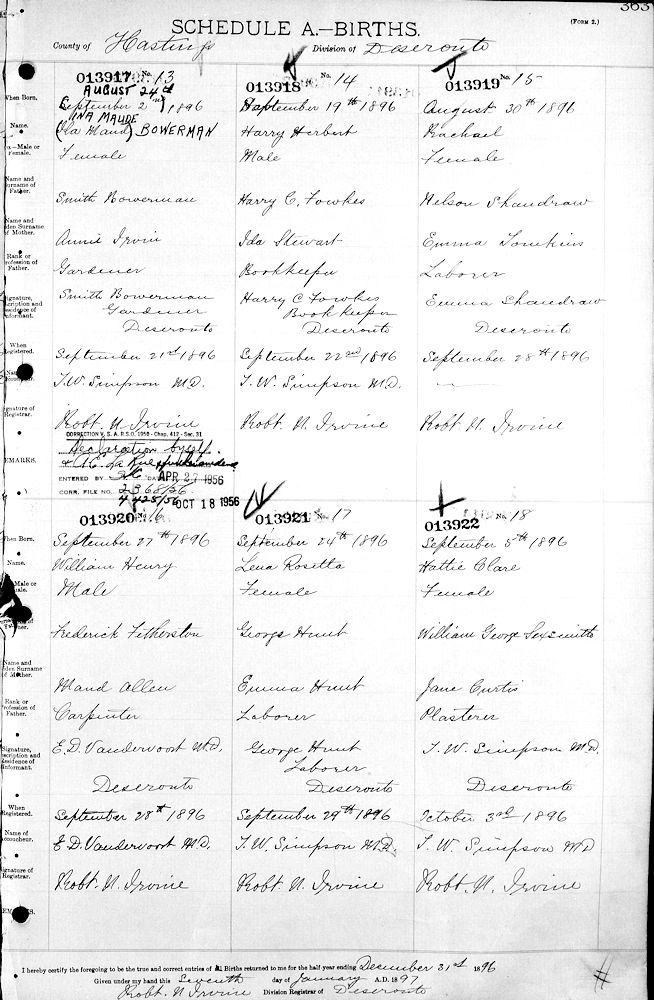 363
SCHEDULE A.—BIRTHS.
(FORM 2.)
County of Hastings Division of Deseronto
013917 No. 13
AUGUST 24th
September 2nd 1896
UNA MAUDE
(Ila Maud) BOWERMAN
Female
Smith Bowerman
Annie Irvin
Gardener
Smith Bowerman
Gardener
Deseronto
September 21st 1896
T. W. Simpson M.D.
Robt. N. Irvine
CORRECTION V. S. A. R.S.O. 1950 - Chap. 412 - Sec. 31
Declaration by self.
ENTERED BY DATE APR 27 1956
CORR. FILE NO. 2368/56
4425/56 OCT 18 1956
013918 No. 14
September 19th 1896
Harry Herbert
Male
Harry C. Fowkes
Ida Stewart
Bookkeeper
Harry C Fowkes
Bookkeeper
Deseronto
September 22nd 1896
T. W. Simpson M.D.
Robt. N. Irvine
013919 No. 15
August 30th 1896
Rachael
Female
Nelson Shaudraw
Emma Tomkins
Laborer
Emma Shaudraw
Deseronto
September 28th 1896
Robt N. Irvine
When Born.
Name.
Male or
Female.
Name and
Surname of
Father.
Name and
Maiden Surname
of Mother.
Rank or
Profession of
Father.
Signature,
Description and
Residence of
Informant.
When
Registered.
Signature of
Registrar.
REMARKS.
013920 No. 16
September 27th 1896
William Henry
Male
Frederick Fitherston
Maud Allen
Carpenter
E. D. Vandervoort M.D.
Deseronto
September 28th 1896
E. D. Vandervoort M.D.
Robt. N. Irvine
013921 No. 17
September 24th 1896
Lena Rosetta
Female
George Hunt
Emma Hunt
Laborer
George Hunt
Laborer
Deseronto
September 29th 1896
T. W. Simpson M.D.
Robt. N. Irvine
013922 No. 18
September 5th 1896
Hattie Clare
Female
William George Sexsmith
Jane Curtis
Plasterer
T. W. Simpson M.D.
Deseronto
October 3rd 1896
T. W. Simpson M.D
Robt. N. Irvine
When Born.
Name.
Male or
Female.
Name and
Maiden Surname
of Mother.
Rank or
Profession of
Father.
Signature,
Description and
Residence of
Informant.
When
Registered.
Name of
Accoucheur.
Signature of
Registrar.
I hereby certify the foregoing to be the true and correct entries of all Births returned to me for the half-year ending December 31st 1896
Given under my hand this Seventh day of January A.D. 1897
Robt. N Irvine Division Registrar of Deseronto